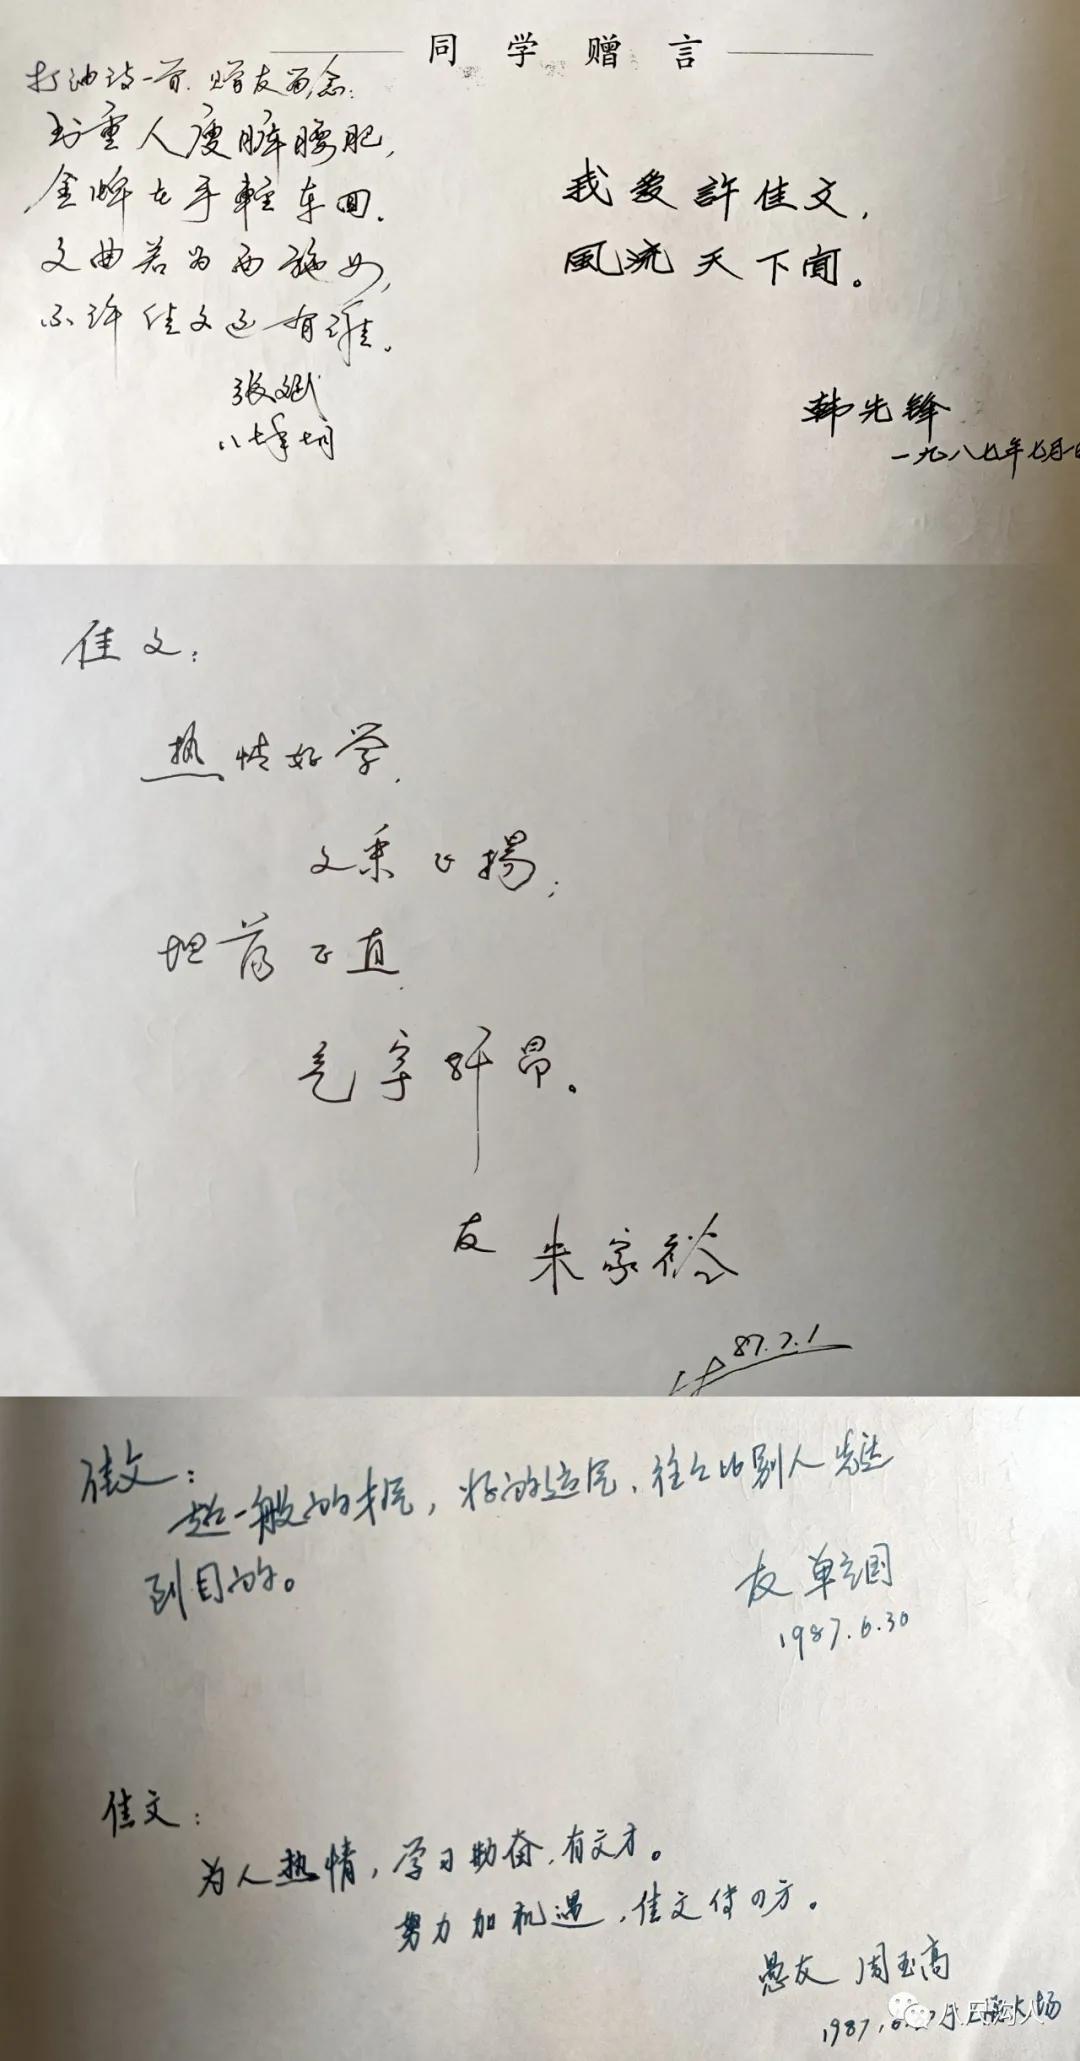 同学赠言
打油诗一首.赠友留念:
书重人瘦腰肥,
金牌在手轻车回.
文曲若为西施女,
不许佳文还有谁.
张斌
八七年七月
我爱許佳文,
風流天下闻。
韩先锋
一九八七年七月一日
佳文:
热情好学,
文采飞揚;
坦荡正直,
气宇轩昂。
友 朱家裕
87.7.1
佳文:
超一般的才气,好的运气,往往比别人先达
到目的。
友 单立国
1987.6.30
佳文:
为人热情,学习勤奋,有文才。
努力加机遇,佳文传四方。
愚友 周玉高
1987.6.
八氏沟人